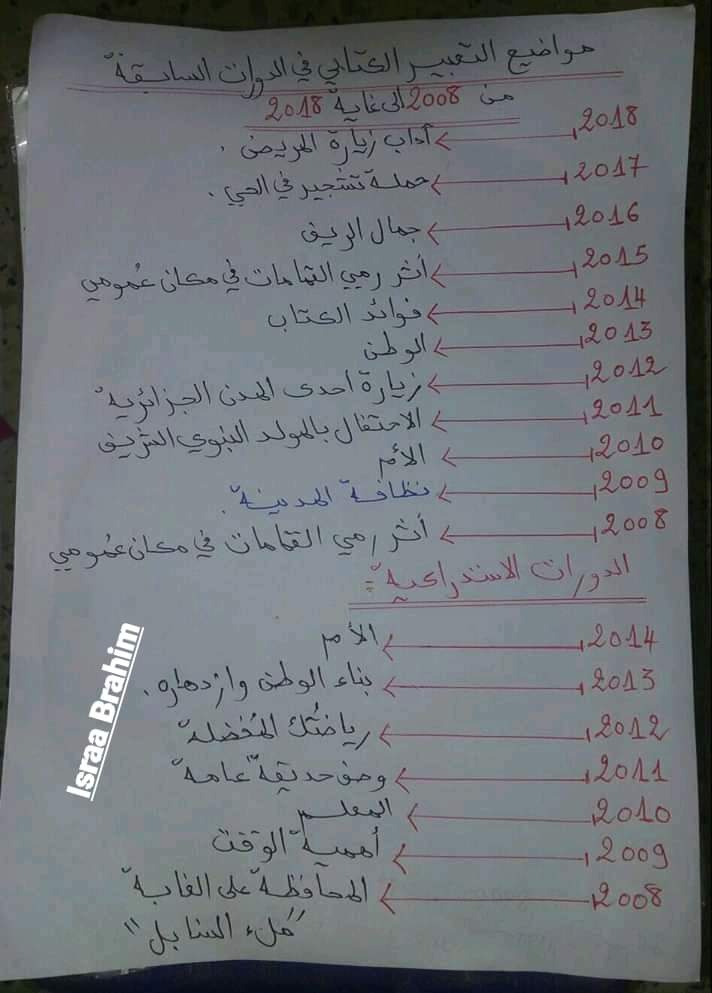 مواضيع التعبير الكتابي في الدورات السابقة
من 2008 الى غاية 2018
2018 آداب زيارة المريض .
2017 حملة تشجير في الحي .
2016 جمال الريف
2015 أثر رمي القمامات في مكان عُمومي
2014 فوائد الكتاب
2013 الوطن
2012 زيارة احدى المدن الجزائرية
2011 الاحتفال بالمولد النبوي الشريف
2010 الأم
2009 نظافة المدينة .
2008 أثر رمي القمامات في مكان عُمومي
الدورات الاستدراكية :
2014 الأم
2013 بناء الوطن وازدهاره .
2012 رياضتُك المُفضلة
2011 وصف حديقة عامة
2010 المعلم
2009 أهمية الوقت
2008 المحافظة على الغابة
"ملء السنابل"
Israa Brahim